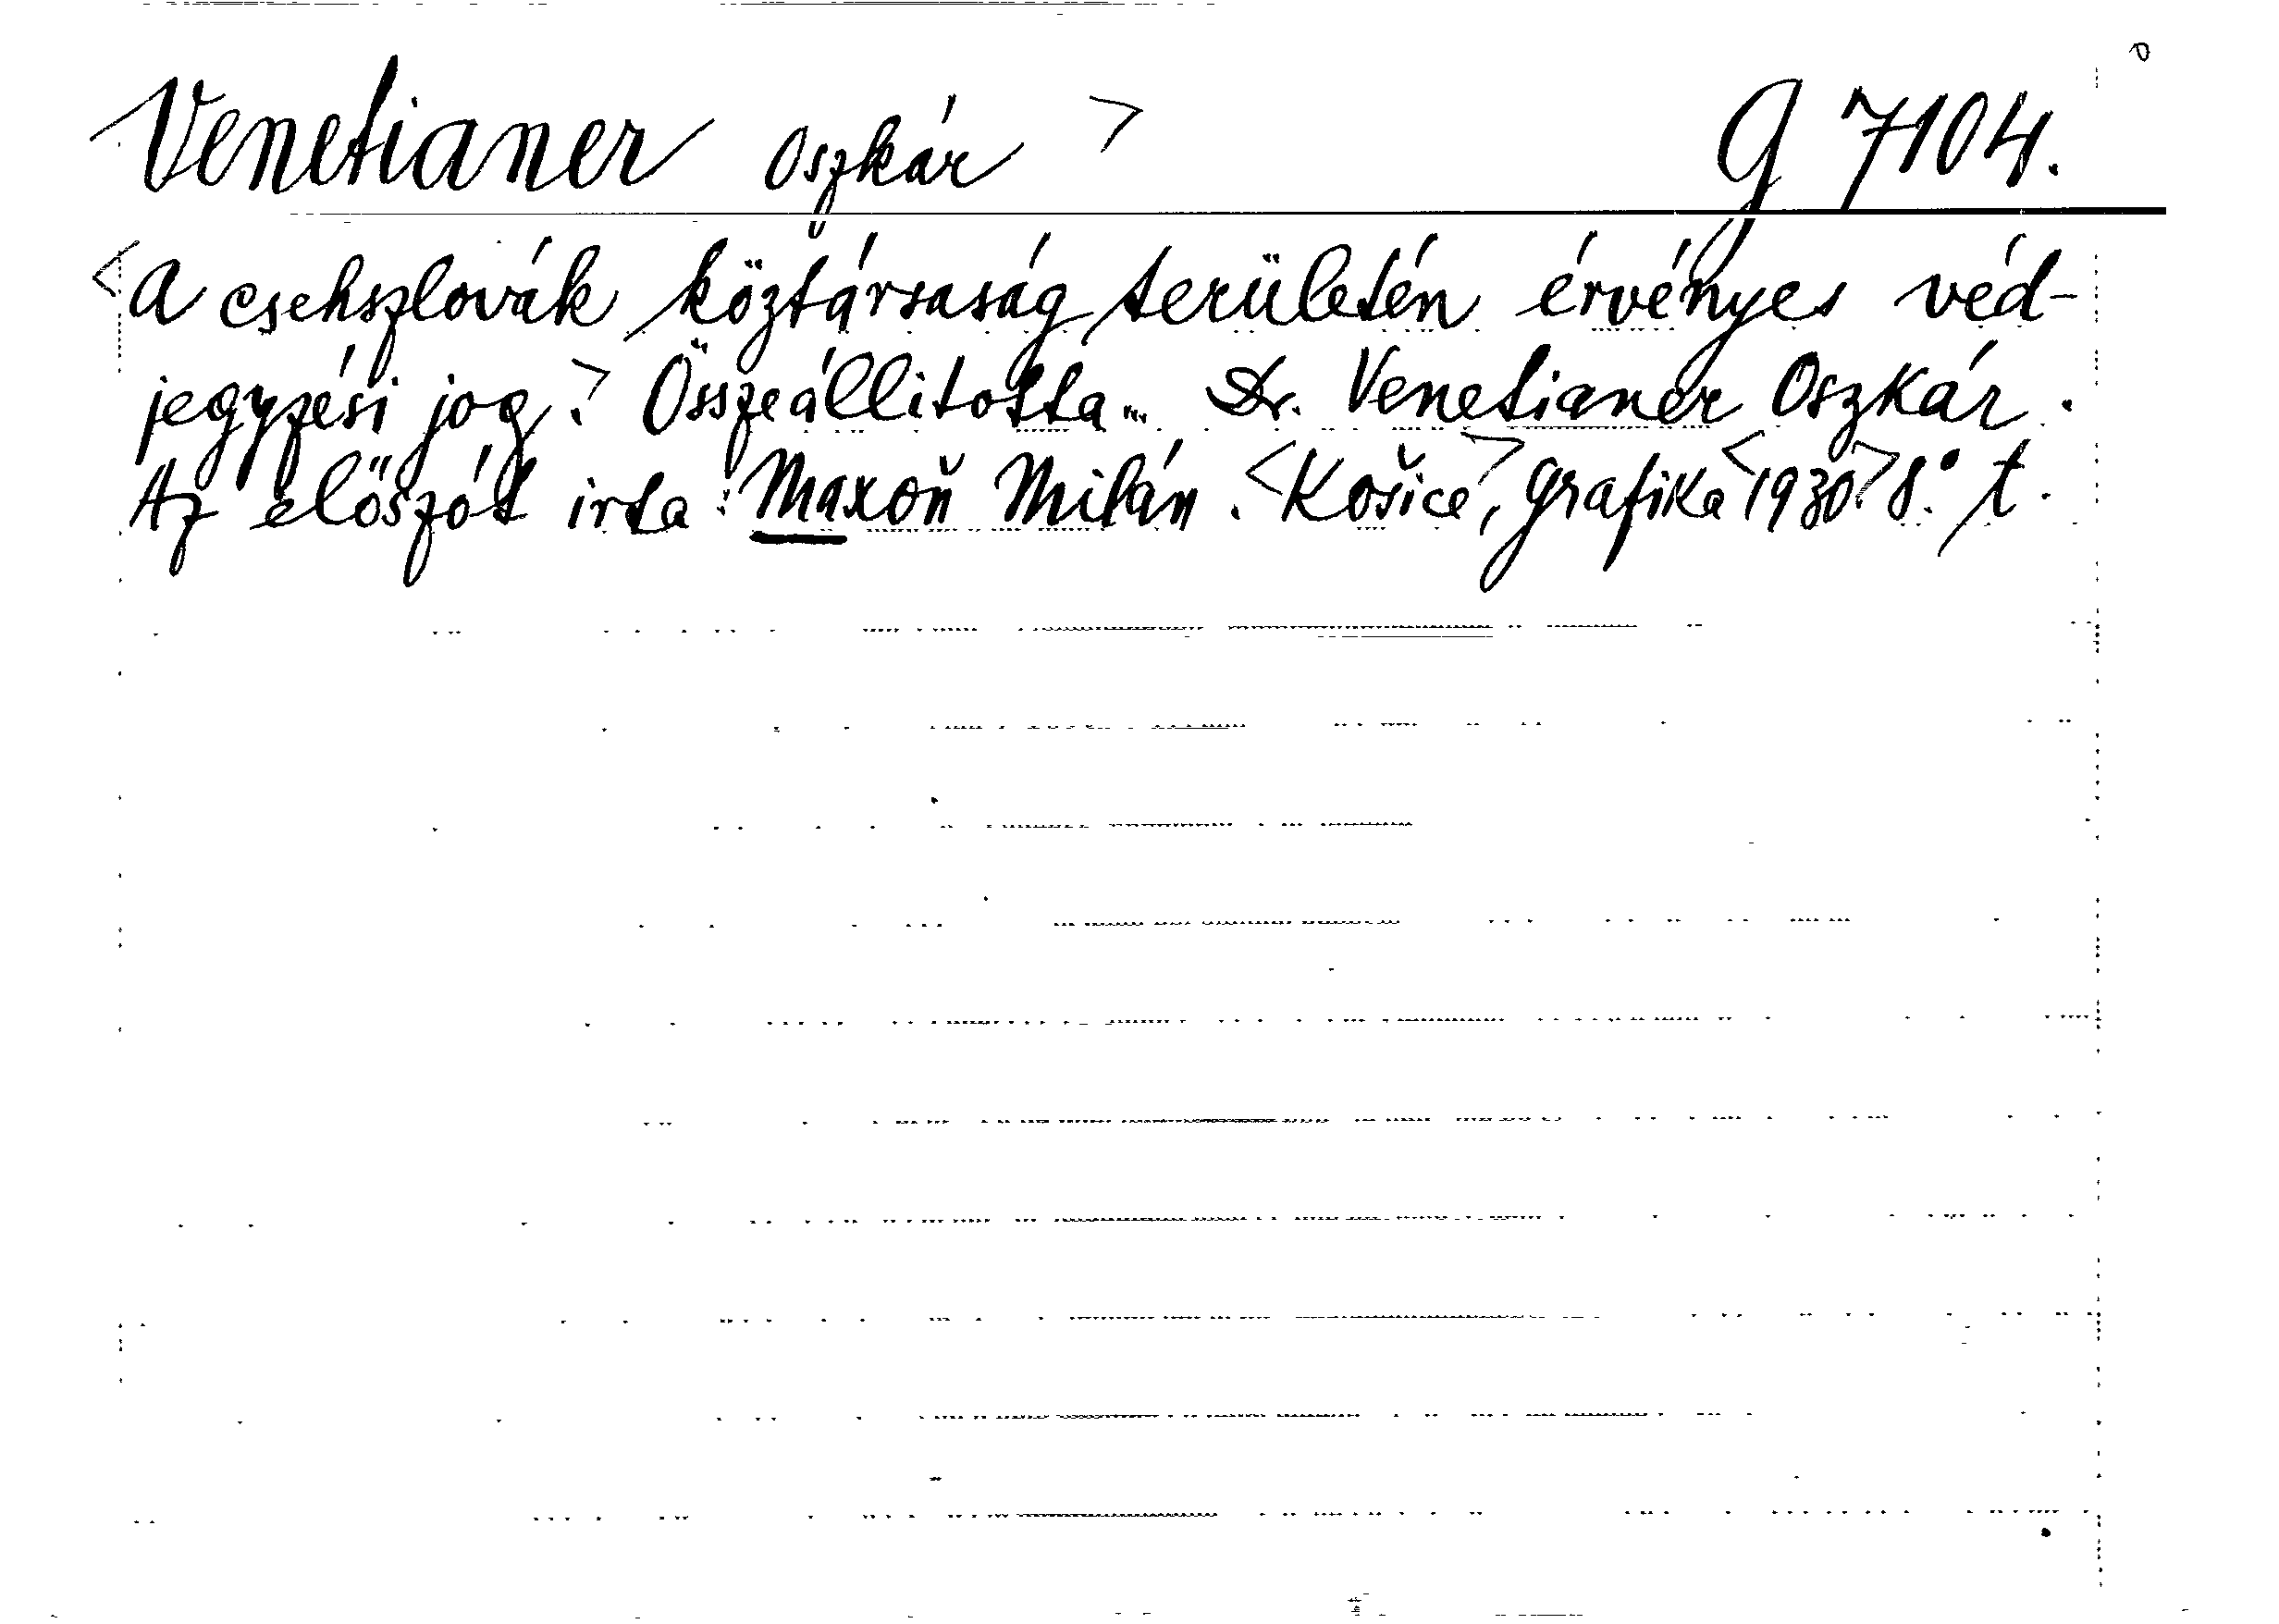 Venetianer Oszkár > G 7104.
<A csehszlovák köztársaság területén érvényes véd-
jegyzési jog.> Összeállitotta... Dr. Venetianer Oszkár.
Az előszót irta: Maxoň Milán. <Košice,> Grafika <1930.> 8.° t.